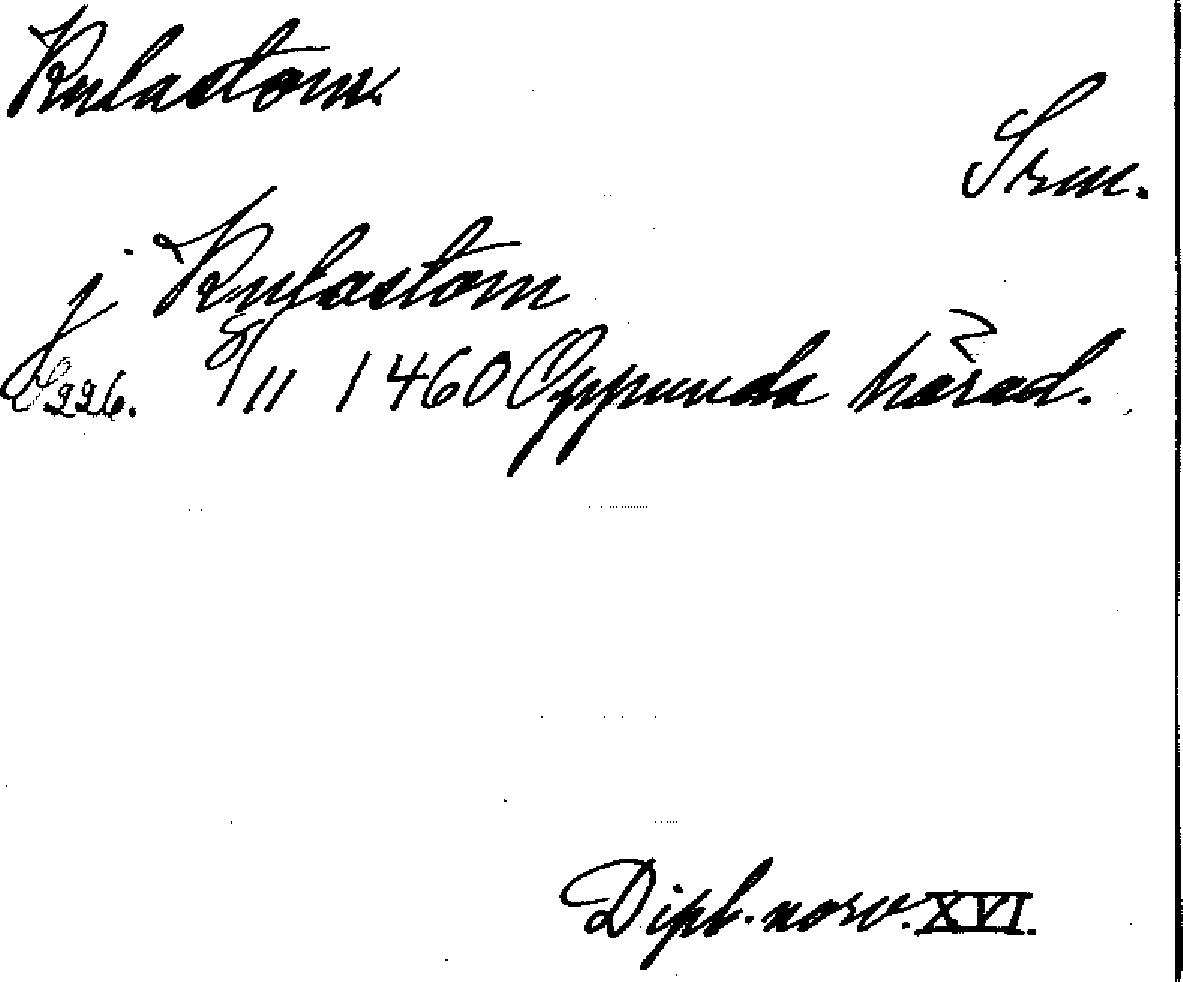 Kulastom.
Srm.
j Kulastom
S 226. 8/11 1460 Oppunda härad.
Dipl. norv. XVI.